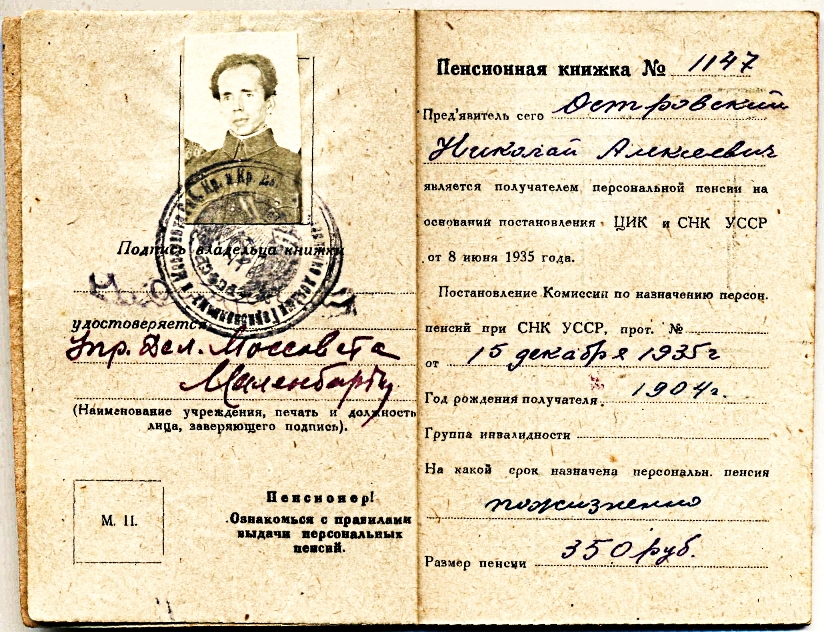 Подпись владельца книжки
удостоверяется
Упр. Дел. Моссовета
(Наименование учреждения, печать и должность
лица, заверяющего подпись).
М. П.
Пенсионер!
Ознакомься с правилами
выдачи персональных
пенсий.
Пенсионная книжка № 1147
Пред'явитель сего Островский
Николай Алексеевич
является получателем персональной пенсии на
основании постановления ЦИК и СНК УССР
от 8 июня 1935 года.
Постановление Комиссии по назначению персон.
пенсий при СНК УССР, прот. №
от 15 декабря 1935 г
Год рождения получателя 1904 г.
Группа инвалидности
На какой срок назначена персональн. пенсия
пожизненно
Размер пенсии 350 руб.